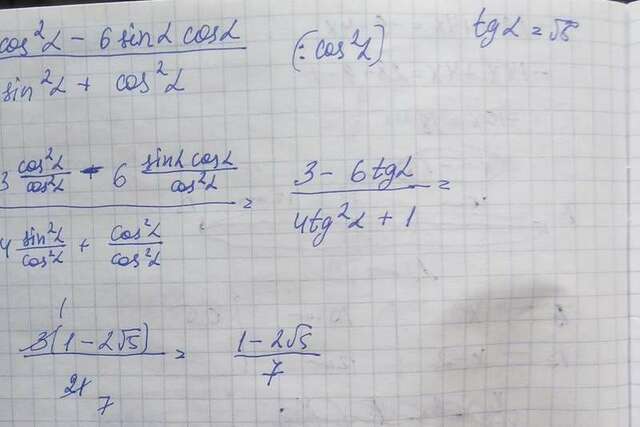 cos²α - 6 sinα cosα / sin²α + cos²α (: cos²α) tgα = √5
3 cos²α/cos²α - 6 sinα cosα/cos²α / 4 sin²α/cos²α + cos²α/cos²α = 3 - 6tgα / 4tg²α + 1 =
1
3(1 - 2√5) / 21 = 1 - 2√5 / 7
7